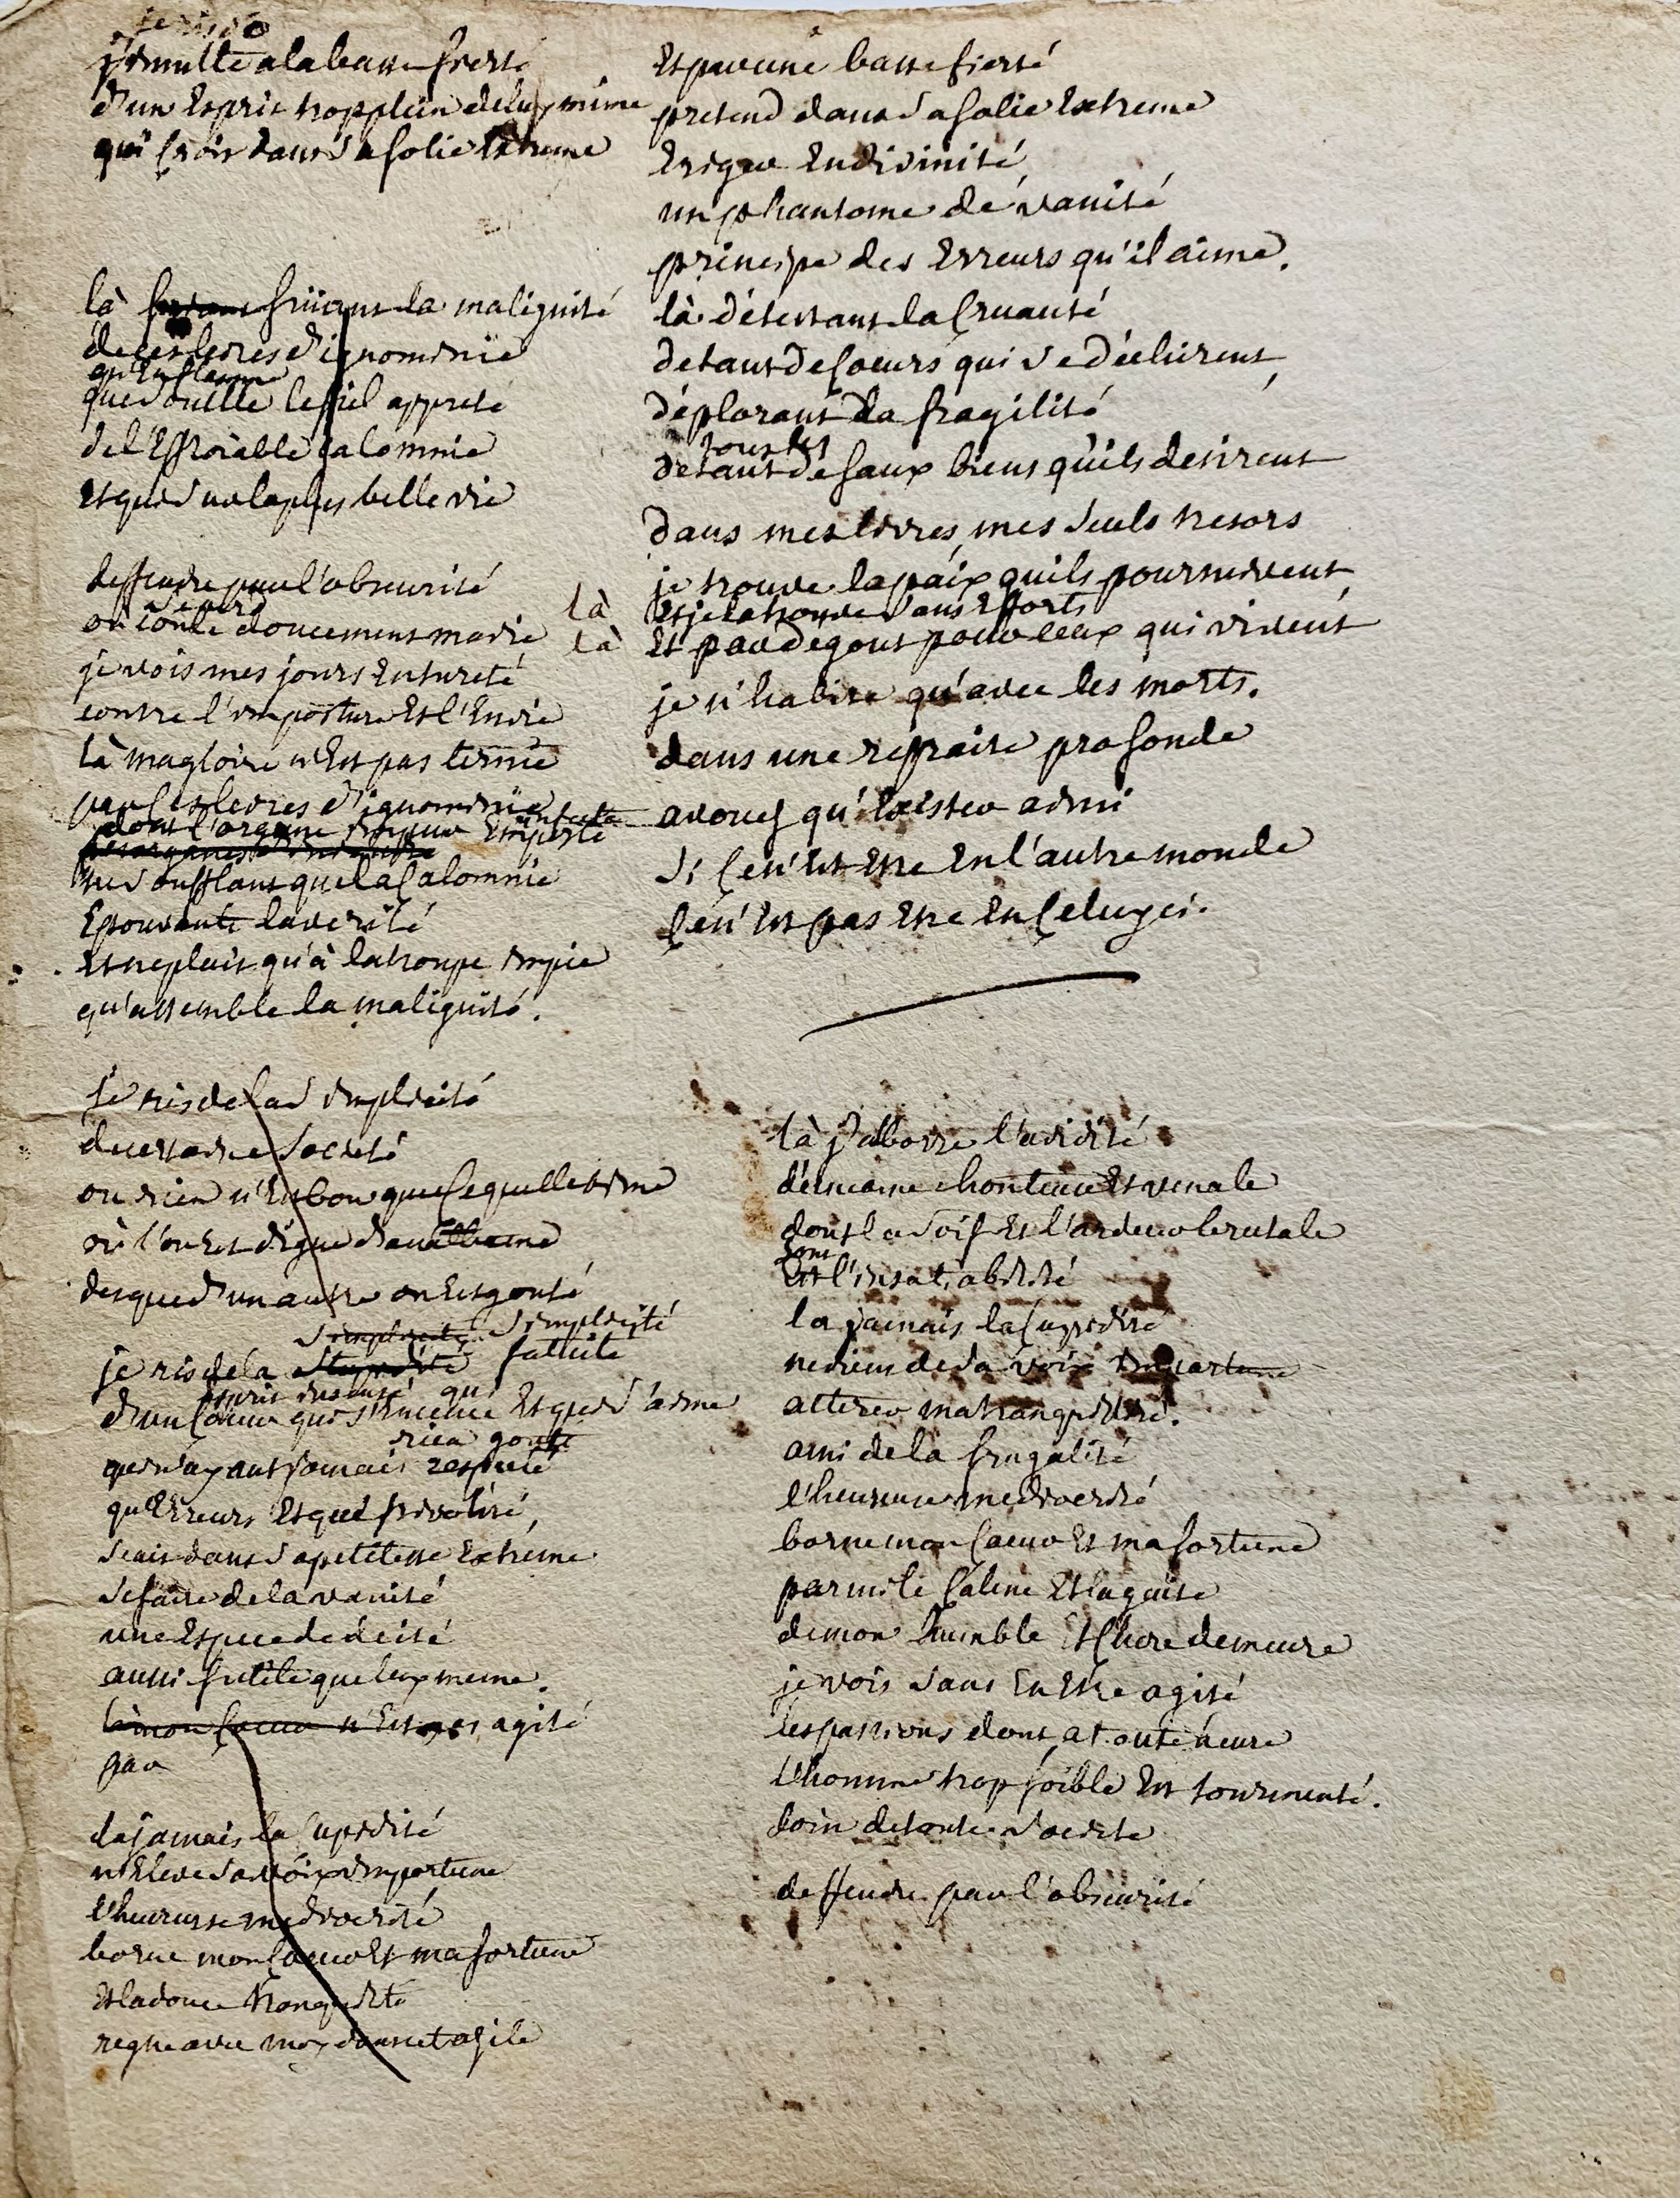 je ris de
j'insulte a la basse fierté
d'un Esprit trop plein de luy mime
qui croit dans sa folie Extreme
là fuiant la malignité
de ces levres d'ignominie
qu'Enflamme
que souille le fiel appreté
de l'Effroiable calomnie
Et que sur la plus belle vie
deffendu par l'obscurité
ou coule doucement ma vie
je vois mes jours En sureté
contre l'imposture Et l'Envie
là ma gloire n'Est pas ternie
par ces levres d'ignominie
dont l'organe impur Et infecté
ne soufflant que la calomnie
Epouvante la verité
Et ne plait qu'à la troupe impie
qu'assemble la malignité.
je ris de la simplicité
de certaine societé
ou rien n'Est bon que ce qu'elle estime
où l'on Est digne d'anatheme
des que d'un autre on Est gouté
simplicité simplicité
je ris de la stupidité fatuité
esprit insensé qui
d'un coeur qui s'encence Et qui s'aime
rien gouté
qui n'ayant jamais respecté
qu'Erreurs Et que frivolité,
scait dans sa petitesse Extrême
se faire de la vanité
une Espece de deité
aussi futile que luy meme.
là mon coeur n'Est pas agité
par
la jamais la cupidité
n'Eleve sa voix importune
l'heureuse mediocrité
borne mon coeur Et ma fortune
Et la douce tranquilité
regne avec moy dans cet asile
Et par une basse fierté
pretend dans sa folie Extreme
Eriger En divinité,
un phantome de vanité
principe des Erreurs qu'il aime.
là détestant la cruauté
de tant de coeurs qui se déchirent,
déplorant la fragilité
tous les
de tant de faux biens qu'ils desirent
dans mes livres, mes seuls tresors
je trouve la paix qu'ils poursuivent,
là Et je la trouve sans Efforts
là Et par degout pour ceux qui vivent
je n'habite qu'avec les morts.
dans une retraite profonde
avouez qu'Exister ainsi
si ce n'Est Etre En l'autre monde
ce n'Est pas Etre En celuy ci.
là j'abhorre l'avidité
d'une ame honteuse Et venale
dont la soif Et l'ardeur brutale
sont
Est l'insatiabilité
la jamais la cupidité
ne vient de sa voix importune
alterer ma tranquilité.
ami de la frugalité
l'heureuse mediocrité
borne mon coeur Et ma fortune
parmi le calme Et la gaité
de mon humble Et chere demeure
je vois sans En Etre agité
les passions dont a toute heure
l'homme trop foible Est tourmenté.
loin de toute societe
deffendu par l'obscurité